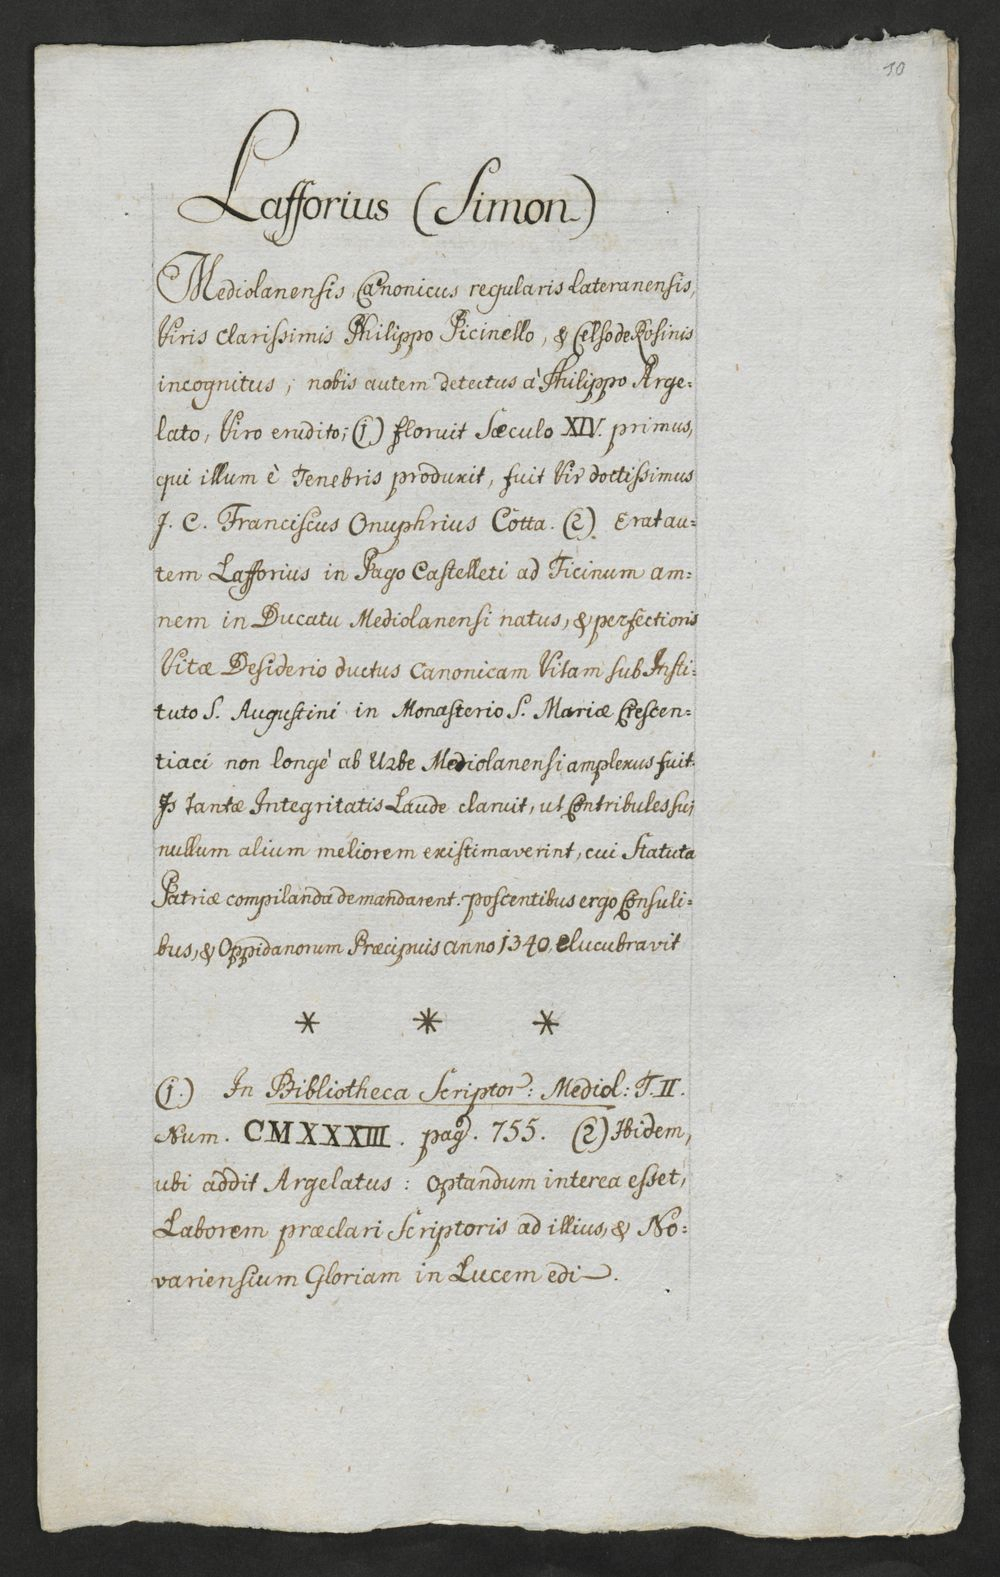 10
Lafforius (Simon)
Mediolanensis, Canonicus regularis Lateranensis,
Viris Clarissimis Philippo Picinello, & Celso de Rosinis
incognitus, nobis autem detectus à Philippo Arge=
lato, Viro erudito; (1) floruit Sæculo XIV. primus,
qui illum è Tenebris produxit, fuit Vir doctissimus
J. C. Franciscus Onuphrius Cotta. (2) Erat au=
tem Lafforius in Pago Castelleti ad Ticinum am=
nem in Ducatu Mediolanensi natus, & perfectionis
Vitæ Desiderio ductus Canonicam Vitam sub Insti=
tuto S. Augustini in Monasterio S. Mariæ Crescen=
tiaci non longè ab Urbe Mediolanensi amplexus fuit.
Is tantæ Integritatis Laude claruit, ut Contribules sui
nullum alium meliorem existimaverint, cui Statuta
Patriæ compilanda demandarent: poscentibus ergo Consuli=
bus, & Oppidanorum Præcipuis anno 1340, elucubravit
* * *
(1.) In Bibliotheca Scriptor: Mediol: T. II.
Num. CMXXXIII. pag. 755. (2) Ibidem,
ubi addit Argelatus: Optandum interea esset,
Laborem præclari Scriptoris ad illius, & No=
variensium Gloriam in Lucem edi.